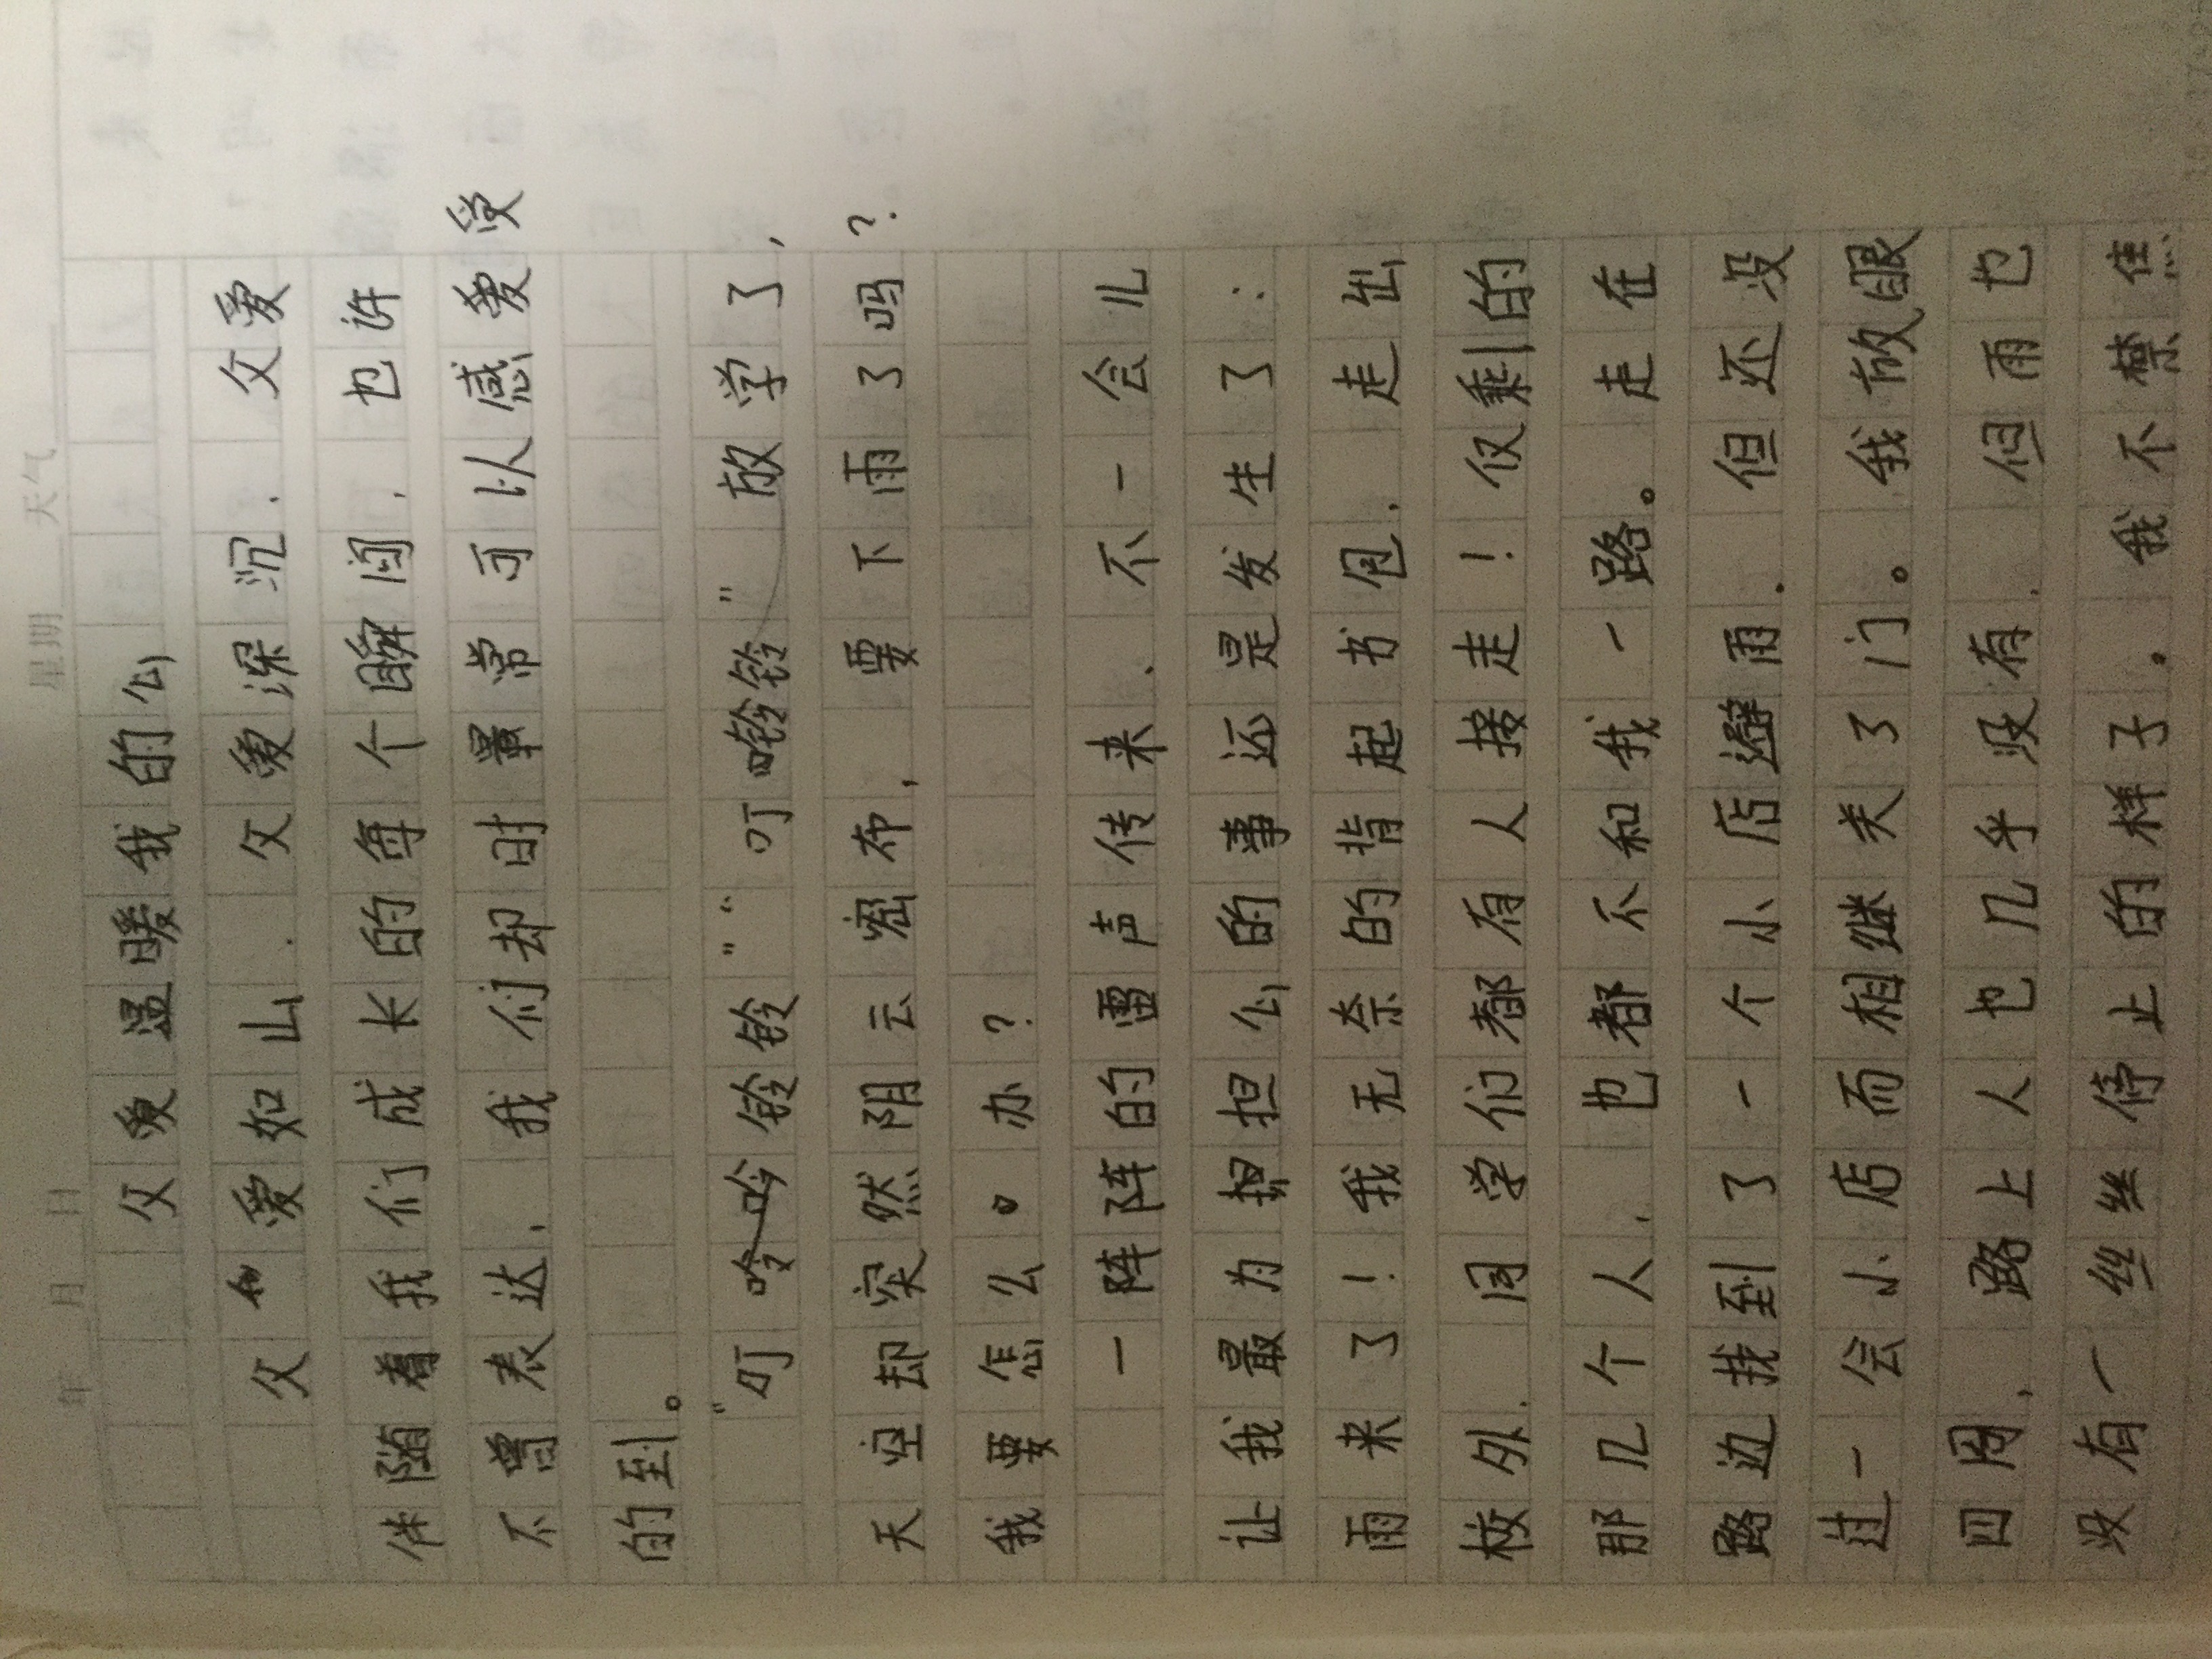 年 月 日 星期 天气
父爱温暖我的心
父爱如山，父爱深沉，父爱
伴随着我们成长的每个瞬间，也许
不曾表达，我们却时常可以感受
的到。
“叮铃铃”“叮铃铃”放学了，
天空却突然阴云密布，要下雨了吗？
我要怎么办？
一阵阵的雷声传来，不一会儿
让我最为担心的事还是发生了：
雨来了！我无奈的背起书包，走出
校外，同学们都有人接走！仅剩的
那几个人，也都不和我一路。走在
路边找到了一个小店避雨，但还没
过一会小店而相继关了门。我放眼
四周，路上人也几乎没有，但雨也
没有一丝丝停止的样子。我不禁焦